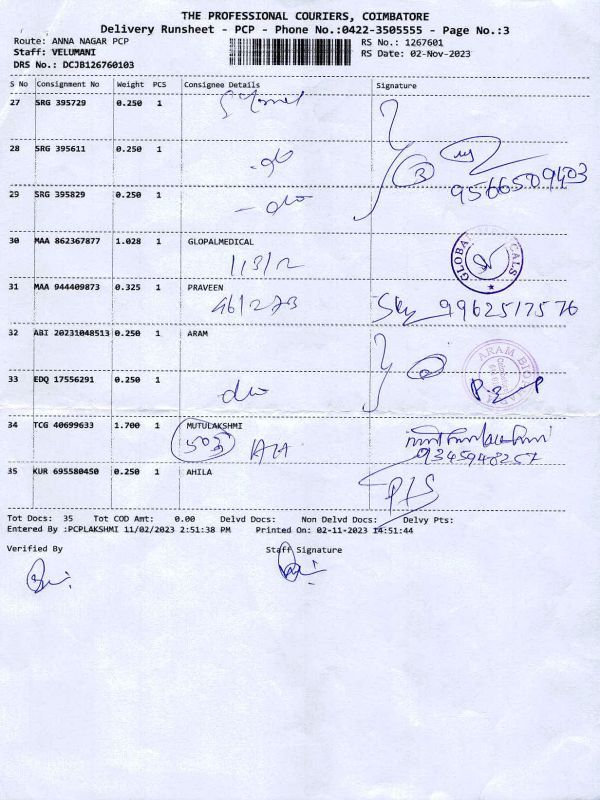 THE PROFESSIONAL COURIERS, COIMBATORE
Delivery Runsheet - PCP - Phone No.:0422-3505555 - Page No.:3
Route: ANNA NAGAR PCP RS No.: 1267601
Staff: VELUMANI RS Date: 02-Nov-2023
DRS No.: DCJB126760103
S No Consignment No Weight PCS Consignee Details Signature
27 SRG 395729 0.250 1
28 SRG 395611 0.250 1
3
9566509403
29 SRG 395829 0.250 1
30 MAA 862367877 1.028 1 GLOPALMEDICAL
113/12
31 MAA 944409873 0.325 1 PRAVEEN
46/273 9962517576
32 ABI 20231048513 0.250 1 ARAM
ARAM
33 EDQ 17556291 0.250 1
34 TCG 40699633 1.700 1 MUTULAKSHMI
9345948257
35 KUR 695580450 0.250 1 AHILA
Tot Docs: 35 Tot COD Amt: 0.00 Delvd Docs: Non Delvd Docs: Delvy Pts:
Entered By :PCPLAKSHMI 11/02/2023 2:51:38 PM Printed On: 02-11-2023 14:51:44
Verified By Staff Signature